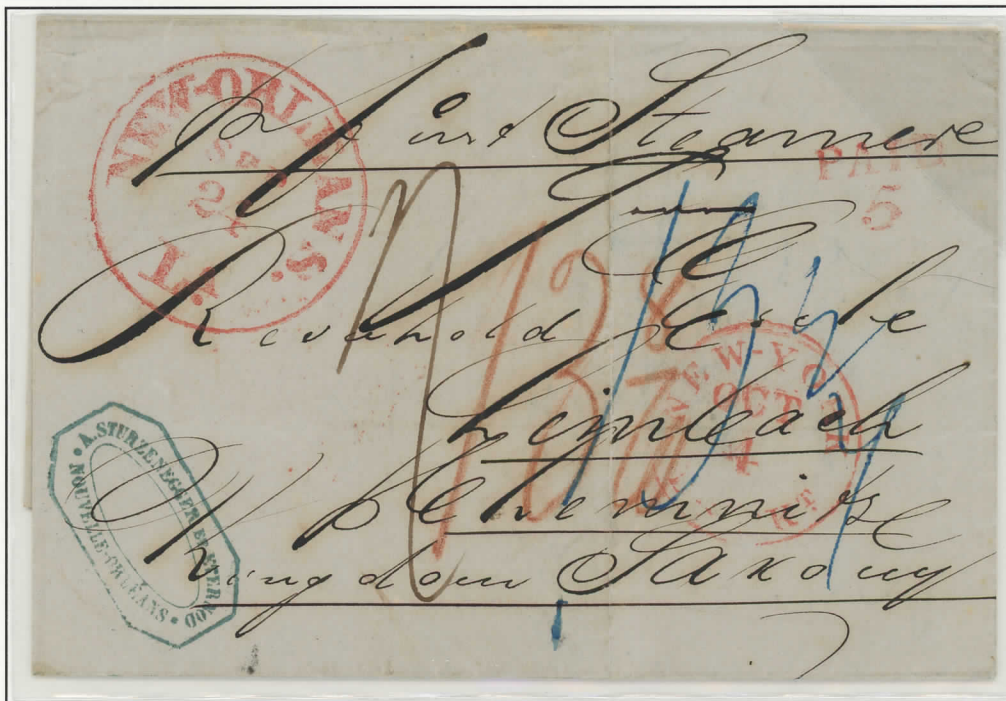 NEW-ORLEANS.
SEP
24
LA.
first Steamer
PAID
5
Reinhold Esche
Limbach
Chemnitz
Kingdom Saxony
NEW-YORK
OCT
4
A. STURZENEGGER ET EYERNOD
NOUVELLE-ORLÉANS